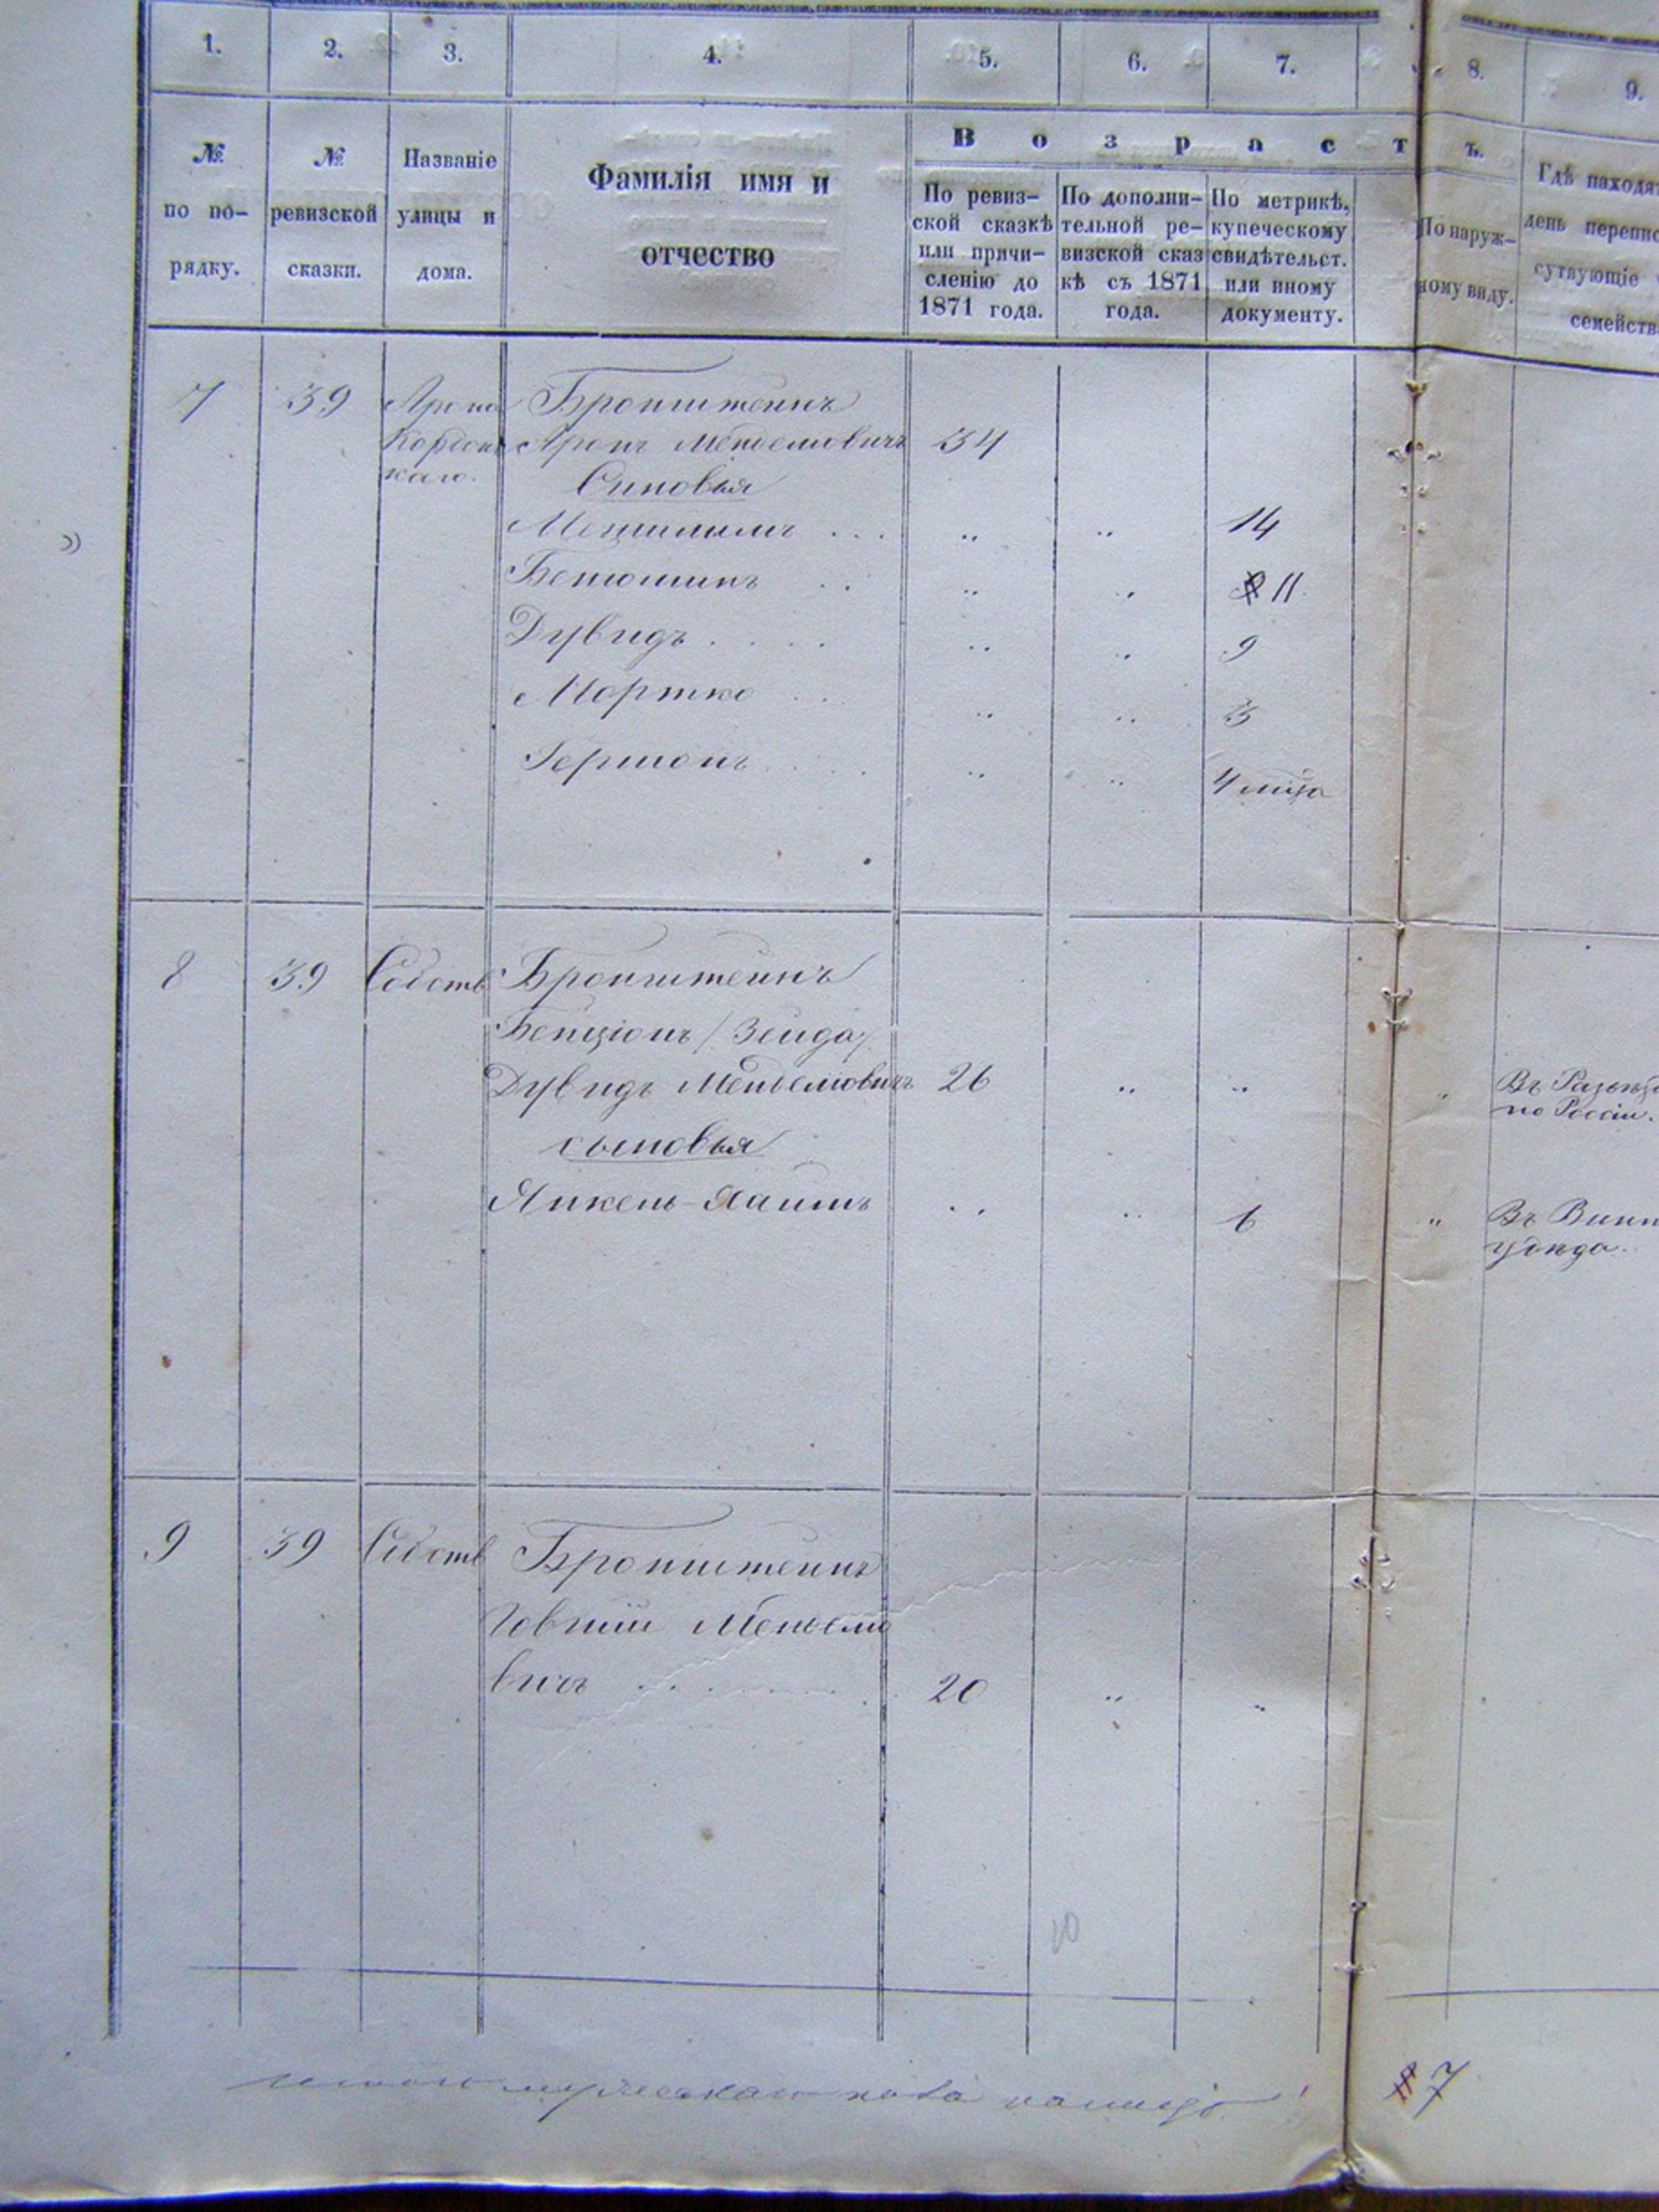 1. 2. 3. 4. 5. 6. 7. 8. 9.
В о з р а с т ъ.
№ по по-рядку.
№ ревизской сказки.
Названіе улицы и дома.
Фамилія имя и отчество
По ревиз-
ской сказкѣ
или причи-
сленію до
1871 года.
По дополни-
тельной ре-
визской сказ
кѣ съ 1871
года.
По метрикѣ,
купеческому
свидѣтельст.
или иному
документу.
По наруж-
ному виду.
Гдѣ находят
день перепис
сутвующіе
семейств
7 39 Арона Бронштейнъ
Аронъ Менделіовичъ 34
каго. Синовья
14
Бенюминъ 11
Дувидъ 9
Мортко 3
Гершонъ 4 мѣца
8 39 Собств Бронштейнъ
Бенціонъ / Зейда /
Дувидъ Менделіовичъ 26 Въ Разъѣз
по Россіи.
сыновья
Янкель-Хаимъ 6 Въ Винн
уѣзда.
9 39 Собств Бронштейнъ
Іовшій Менделіо
вичъ 20
10
мужескаго пола
7